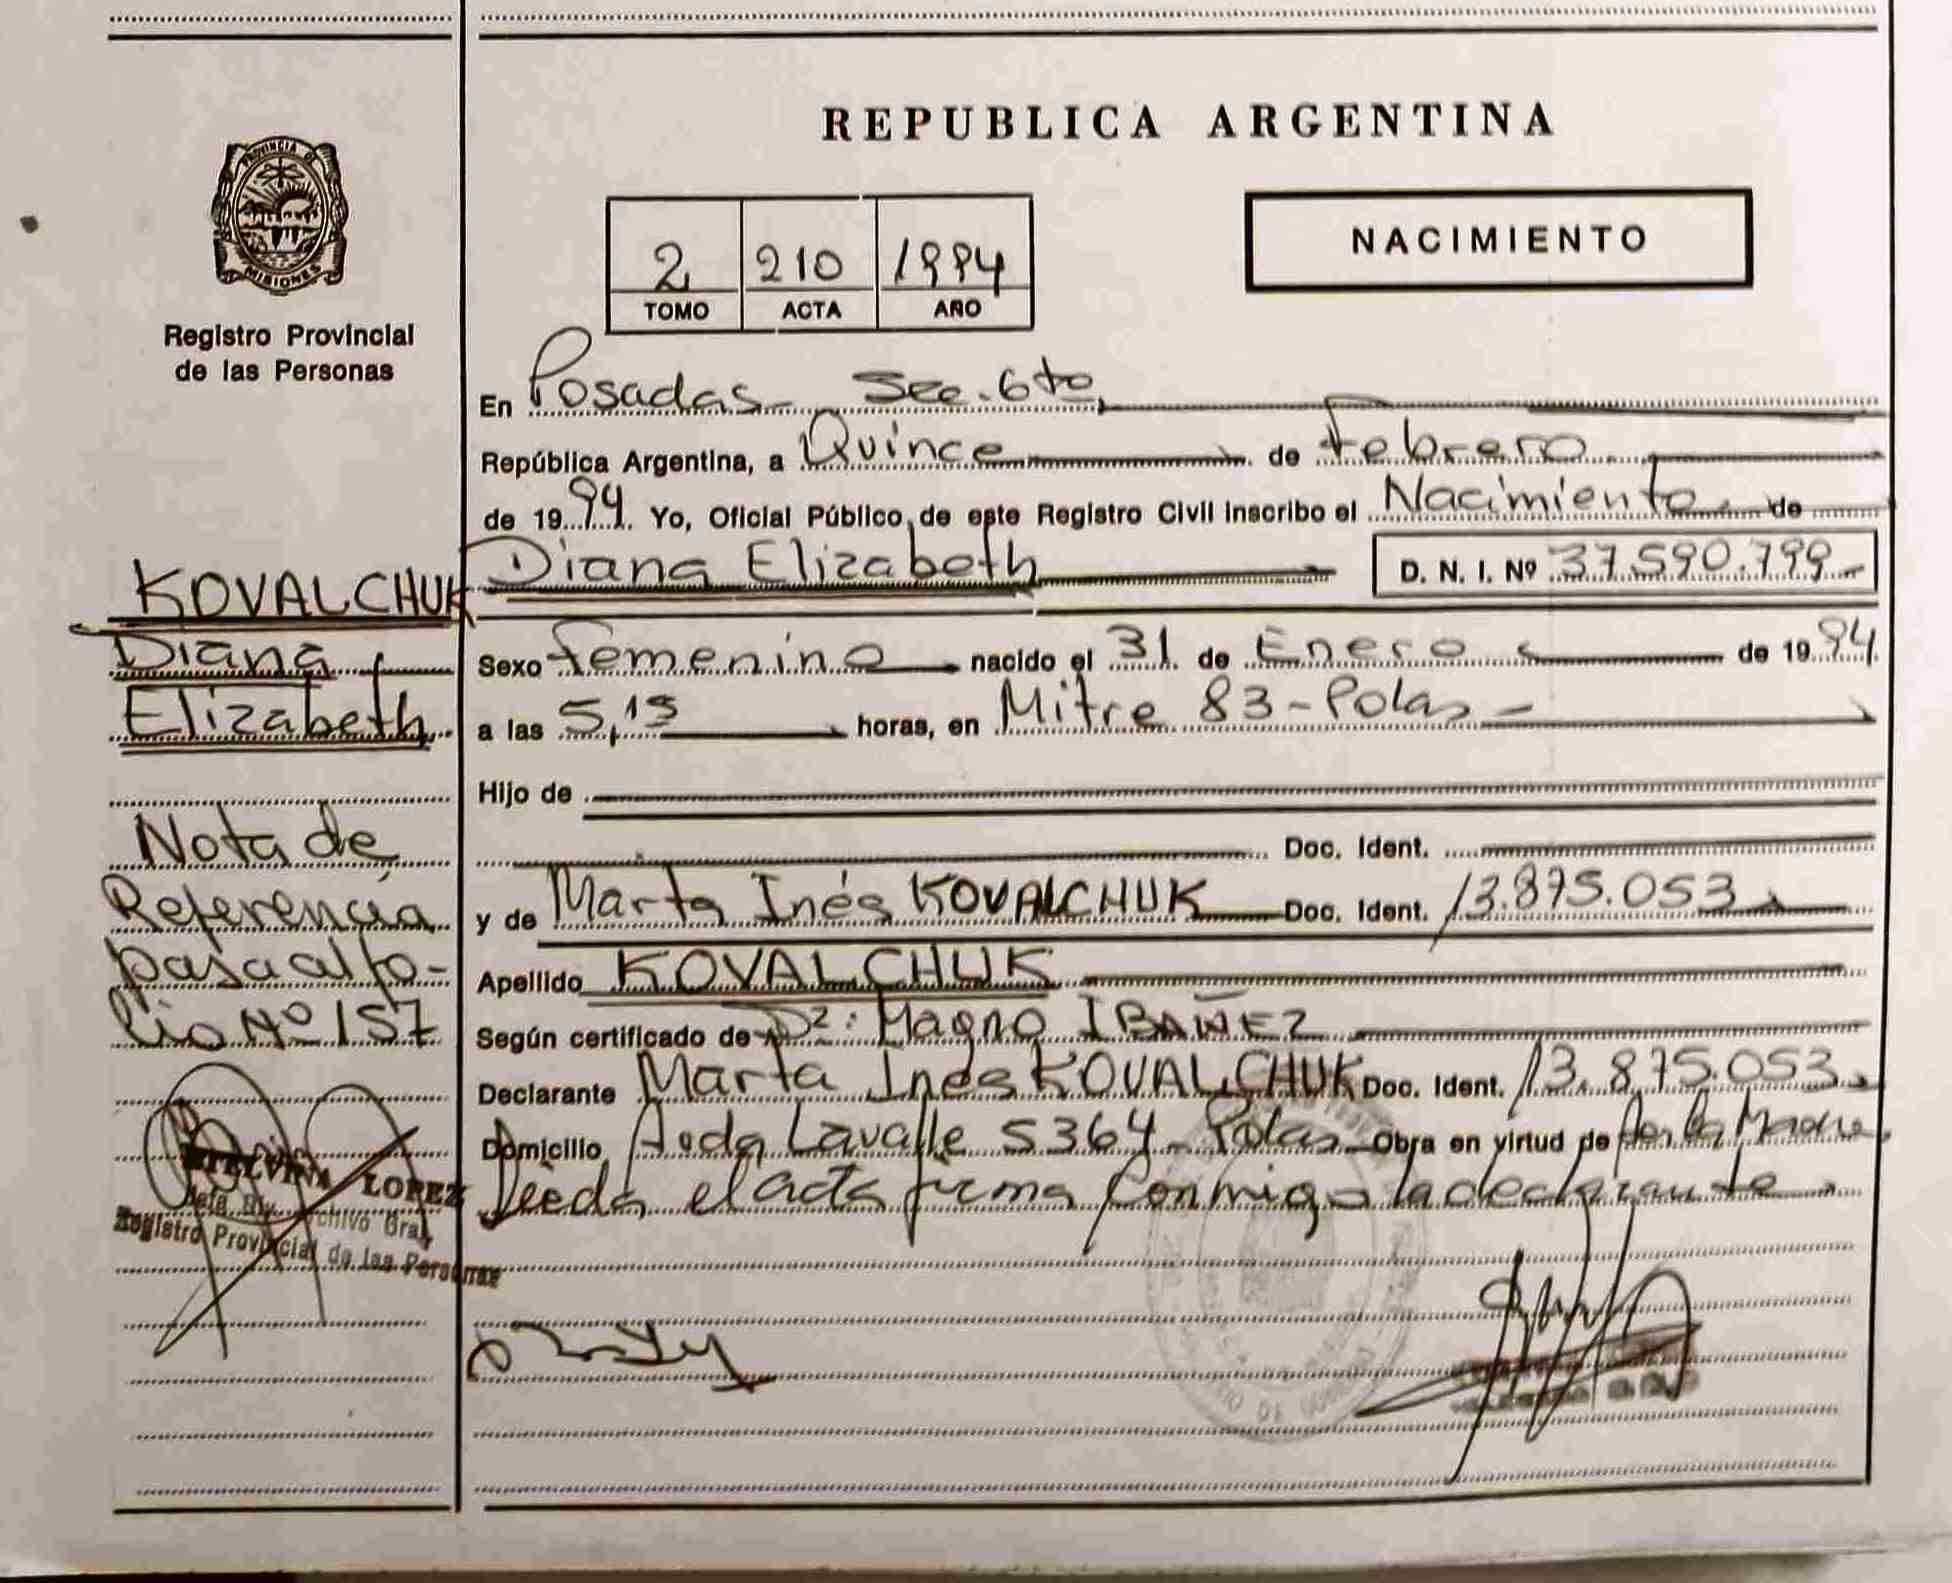 PROVINCIA DE
MISIONES
Registro Provincial
de las Personas
KOVALCHUK
Diana
Elizabeth
Nota de
Referencia
pasa al fo-
lio Nº 157
ETELVINA LOPEZ
Jefa Div. Archivo Gral.
Registro Provincial de las Personas
REPUBLICA ARGENTINA
2 210 1994
TOMO ACTA AÑO
NACIMIENTO
En Posadas - Sec. 6ta
República Argentina, a Quince de Febrero
de 1994. Yo, Oficial Público, de este Registro Civil inscribo el Nacimiento de
Diana Elizabeth D. N. I. Nº 37.590.799
Sexo femenino nacido el 31 de Enero de 1994
a las 5,15 horas, en Mitre 83 - Pdas -
Hijo de
Doc. Ident.
y de Marta Inés KOVALCHUK Doc. Ident. 13.875.053
Apellido KOVALCHUK
Según certificado de Dr: Magno IBAÑEZ
Declarante Marta Inés KOVALCHUK Doc. Ident. 13.875.053
Domicilio Avda Lavalle 5364 - Pdas - Obra en virtud de ser la Madre.
Leída el acta firma conmigo la declarante